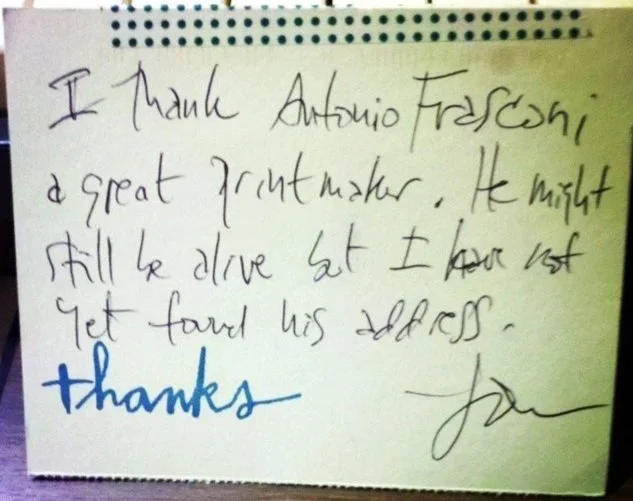 I Thank Antonio Frasconi
a great printmaker. He might
still be alive but I have not
yet found his address.
thanks